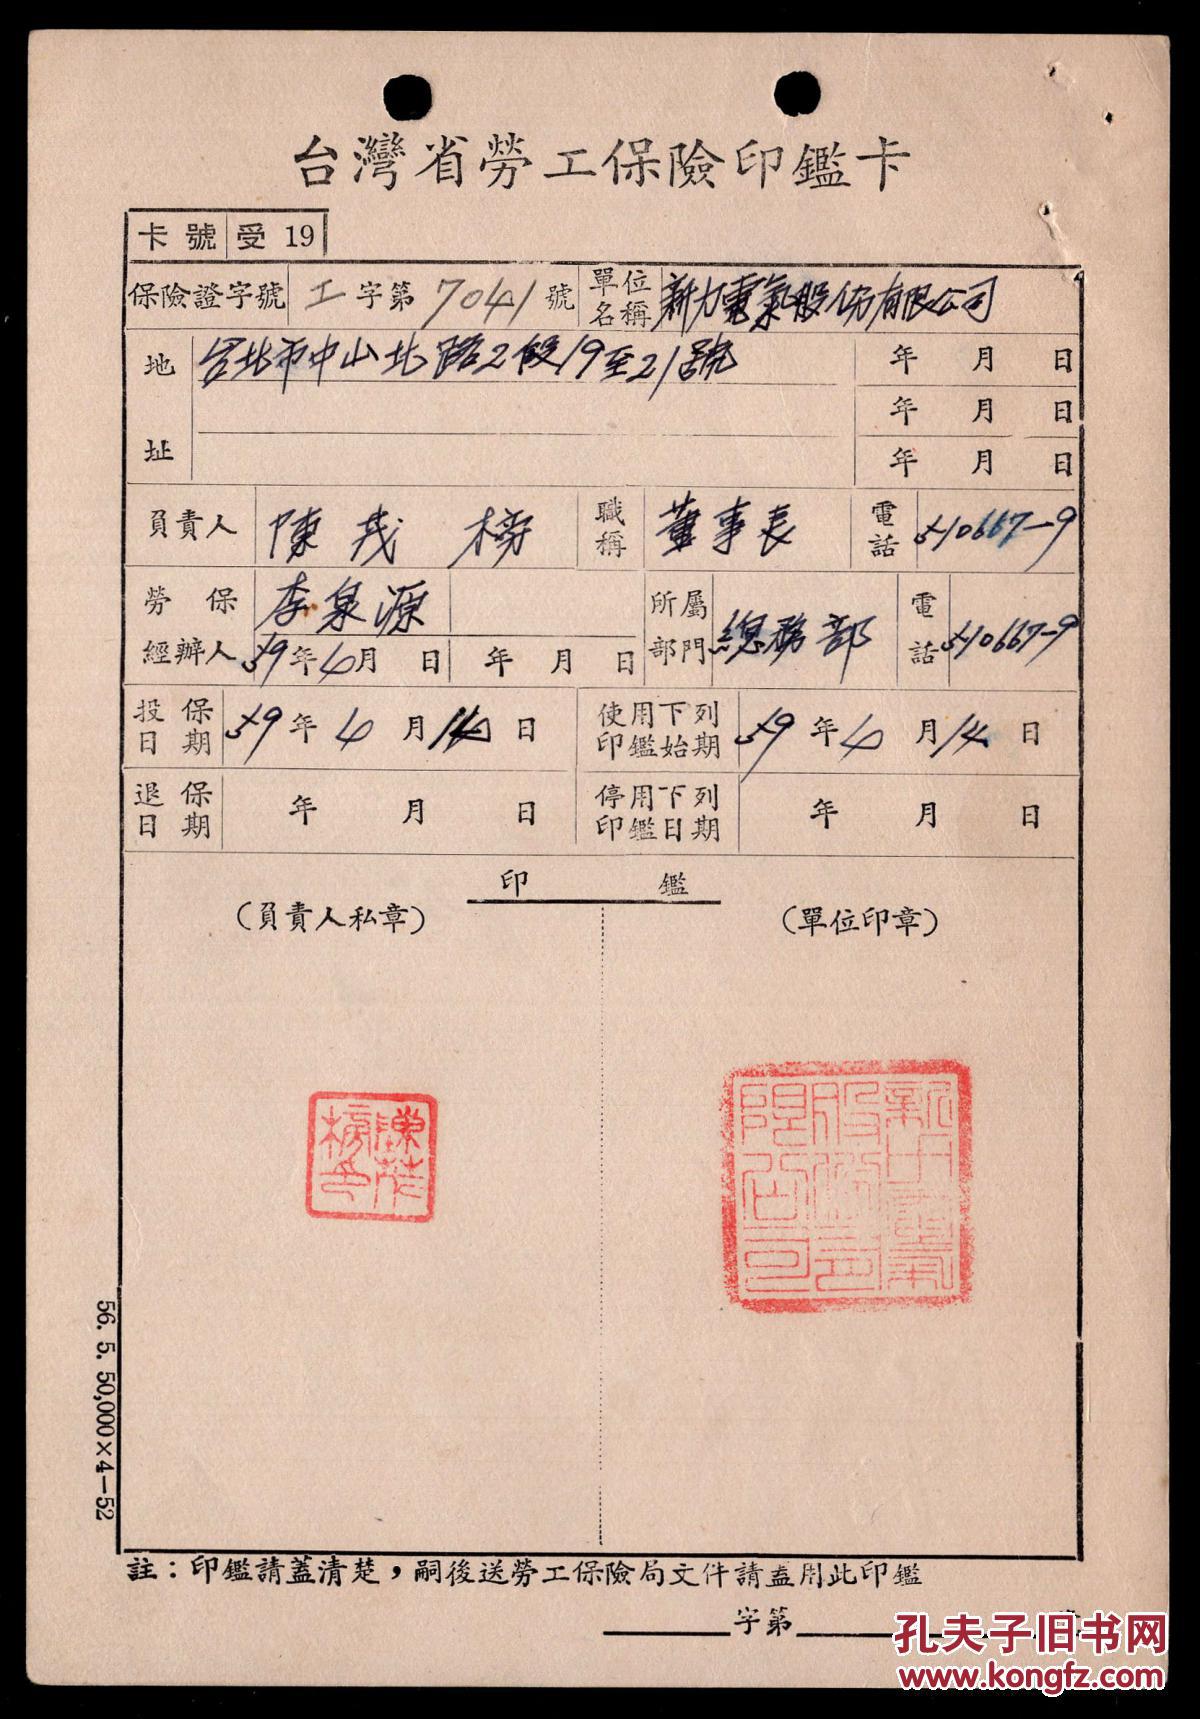 台灣省勞工保險印鑑卡
卡號 受 19
保險證字號 工字第7041號 單位名稱 新力電氣股份有限公司
地址 台北市中山北路2段19至21號 年 月 日
年 月 日
年 月 日
負責人 陳茂榜 職稱 董事長 電話 510667-9
勞保經辦人 李泉源 所屬部門 總務部 電話 510667-9
59年4月 日 年 月 日
投保日期 59年4月14日 使用下列印鑑始期 59年4月14日
退保日期 年 月 日 停用下列印鑑日期 年 月 日
印 鑑
(負責人私章) (單位印章)
陳茂榜印
新力電氣股份有限公司
56. 5. 50,000×4—52
註：印鑑請蓋清楚，嗣後送勞工保險局文件請蓋用此印鑑
字第
孔夫子旧书网
www.kongfz.com